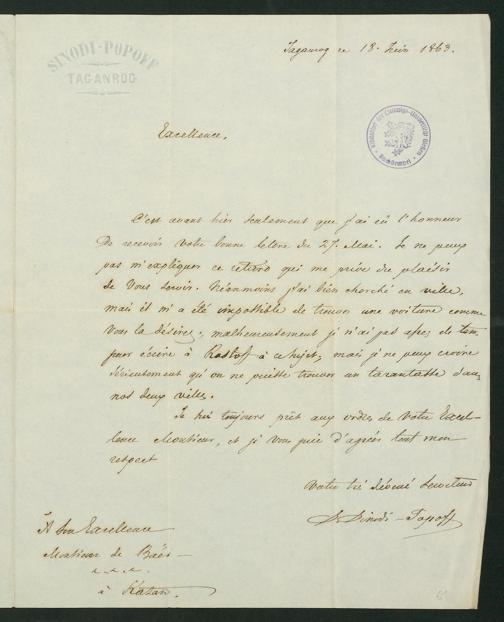 SINODI-POPOFF
TAGANROG
Taganrog ce 18 Juin 1863.
Excellence.
C'est avant hier seulement que j'ai eû l'honneur
de recevoir votre bonne lettre du 27. Mai. Je ne peux
pas m'expliquer ce retard qui me prive du plaisir
de Vous servir. Néanmoins j'ai bien cherché en ville,
mais il m'a été impossible de trouver une voiture comme
Vous la désirez, malheureusement je n'ai pas assez de tem
pour écrire à Rostoff à ce sujet, mais je ne peux croire
sérieusement qu'on ne puisse trouver un tarantasse dans
nos deux villes.
Je suis toujours prêt aux ordres de Votre Excel-
lence Monsieur, et je Vous prie d'agréer tout mon
respect
Votre très dévoué Serviteur
Sinodi-Popoff
À Son Excellence
Monsieur de Baër
à Kazan.